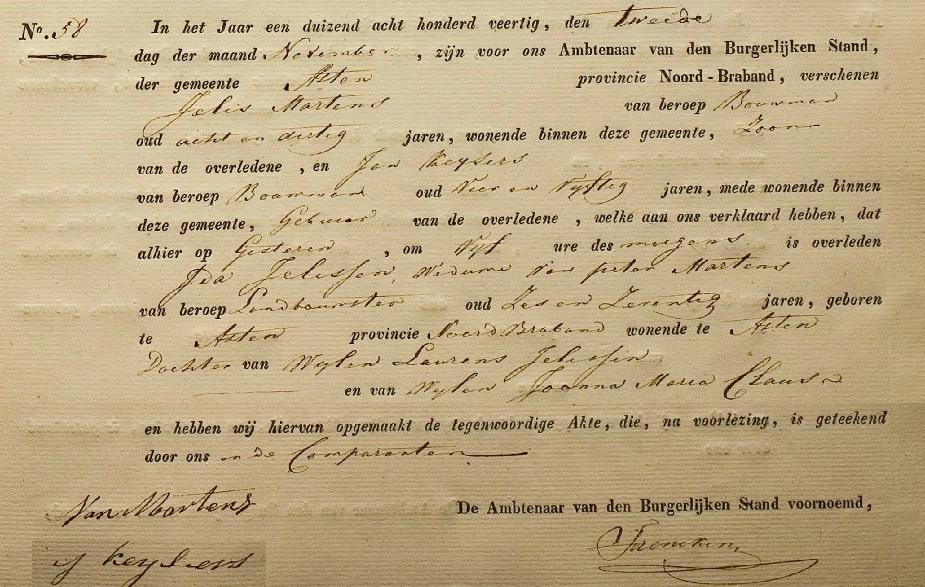 No. 58 In het Jaar een duizend acht honderd veertig, den tweede
dag der maand November, zijn voor ons Ambtenaar van den Burgerlijken Stand,
der gemeente Asten provincie Noord-Braband, verschenen
Jelis Martens van beroep Bouwman
oud acht en dertig jaren, wonende binnen deze gemeente, Zoon
van de overledene, en Jan Keysers
van beroep Bouwman oud Vier en Vyftig jaren, mede wonende binnen
deze gemeente, Gebuur van de overledene, welke aan ons verklaard hebben, dat
alhier op Gisteren, om Vyf ure des morgens is overleden
Ida Jelissen Weduwe van pieter Martens
van beroep Landbouwster oud Zes en Zeventig jaren, geboren
te Asten provincie Noord Braband wonende te Asten
Dochter van Wylen Laurens Jelissen
en van Wylen Joanna Maria Claus
en hebben wij hiervan opgemaakt de tegenwoordige Akte, die, na voorlezing, is geteekend
door ons en de Comparanten
Martens De Ambtenaar van den Burgerlijken Stand voornoemd,
J Keysers Frencken